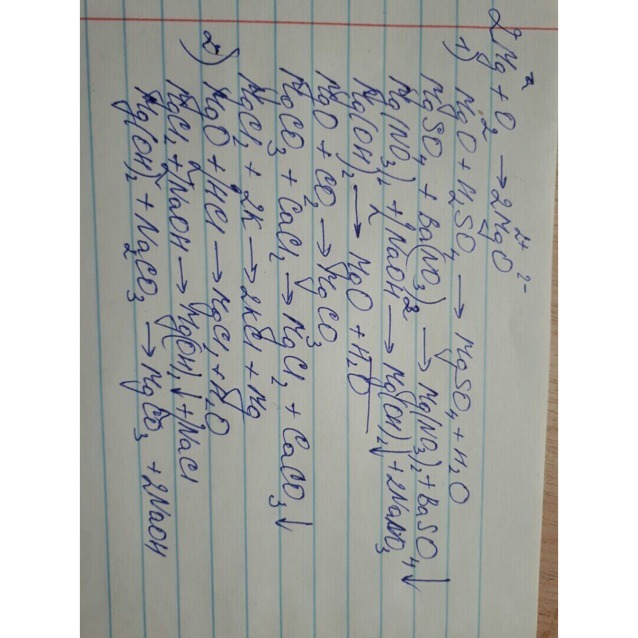 2Mg + O₂ → 2Mg²⁺O²⁻
1) MgO + H₂SO₄ → MgSO₄ + H₂O
MgSO₄ + Ba(NO₃)₂ → Mg(NO₃)₂ + BaSO₄↓
Mg(NO₃)₂ + 2NaOH → Mg(OH)₂↓ + 2NaNO₃
Mg(OH)₂ → MgO + H₂O
MgO + CO₂ → MgCO₃
MgCO₃ + CaCl₂ → MgCl₂ + CaCO₃↓
MgCl₂ + 2K → 2KCl + Mg
2) MgO + HCl → MgCl₂ + H₂O
MgCl₂ + 2NaOH → Mg(OH)₂↓ + NaCl
Mg(OH)₂ + Na₂CO₃ → MgCO₃ + 2NaOH